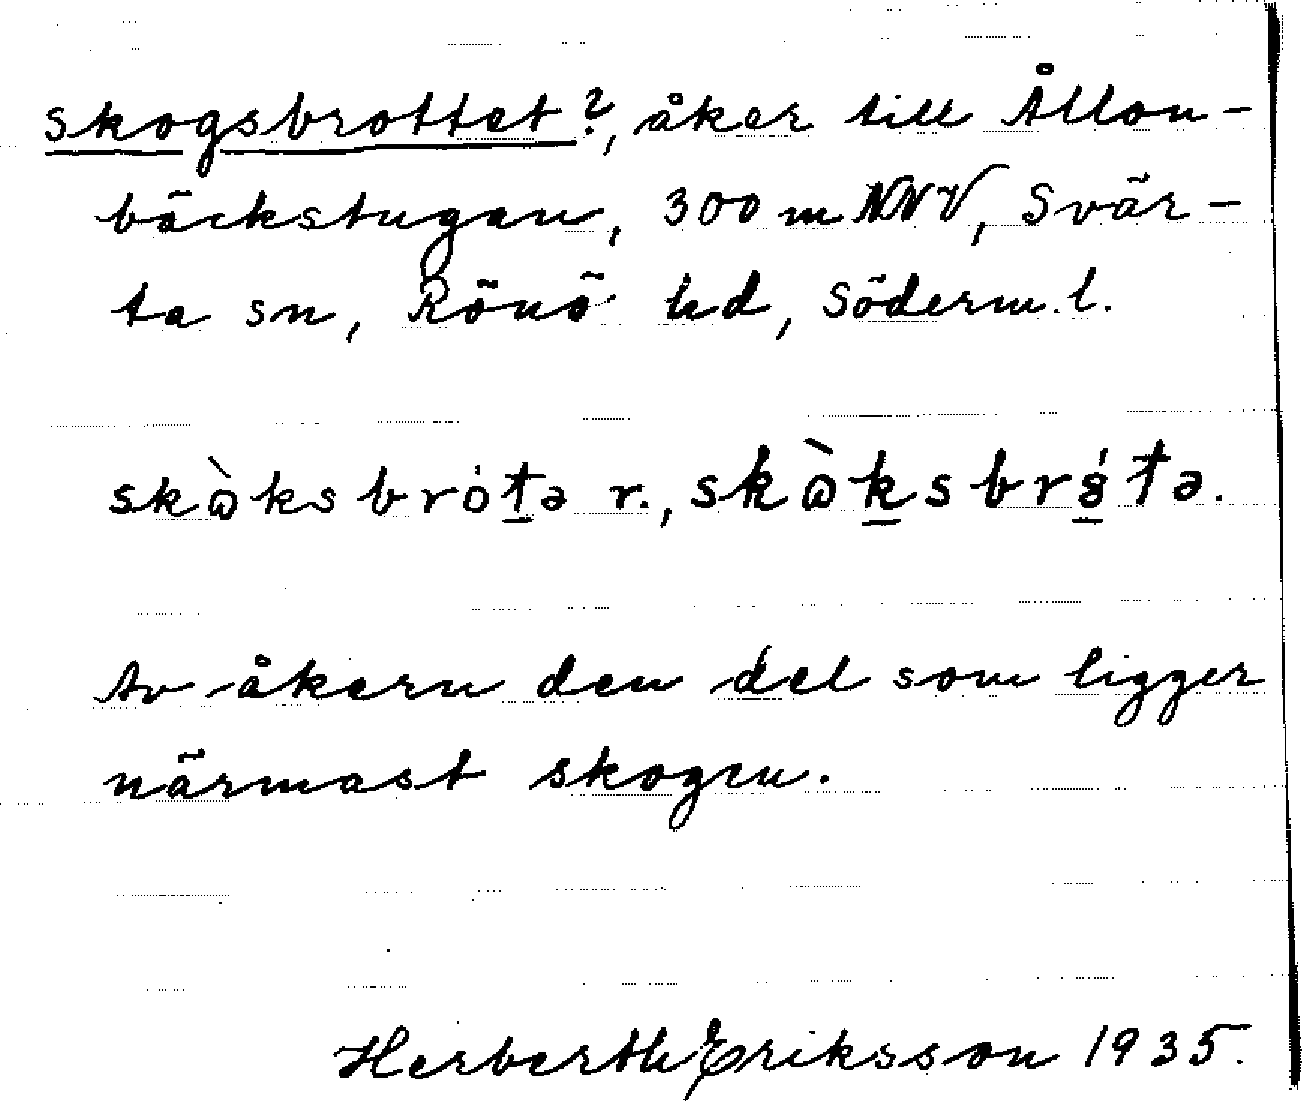 skogsbrottet?, åker till Ållon-
bäckstugan, 300 m NNV, Svär-
ta sn, Rönö hd, Söderm. l.
skⱺ̀ksbrȯt̠ə r., skⱺ̀k̠sbr8̠́tə.
Av åkern den del som ligger
närmast skogen.
Herberth Eriksson 1935.